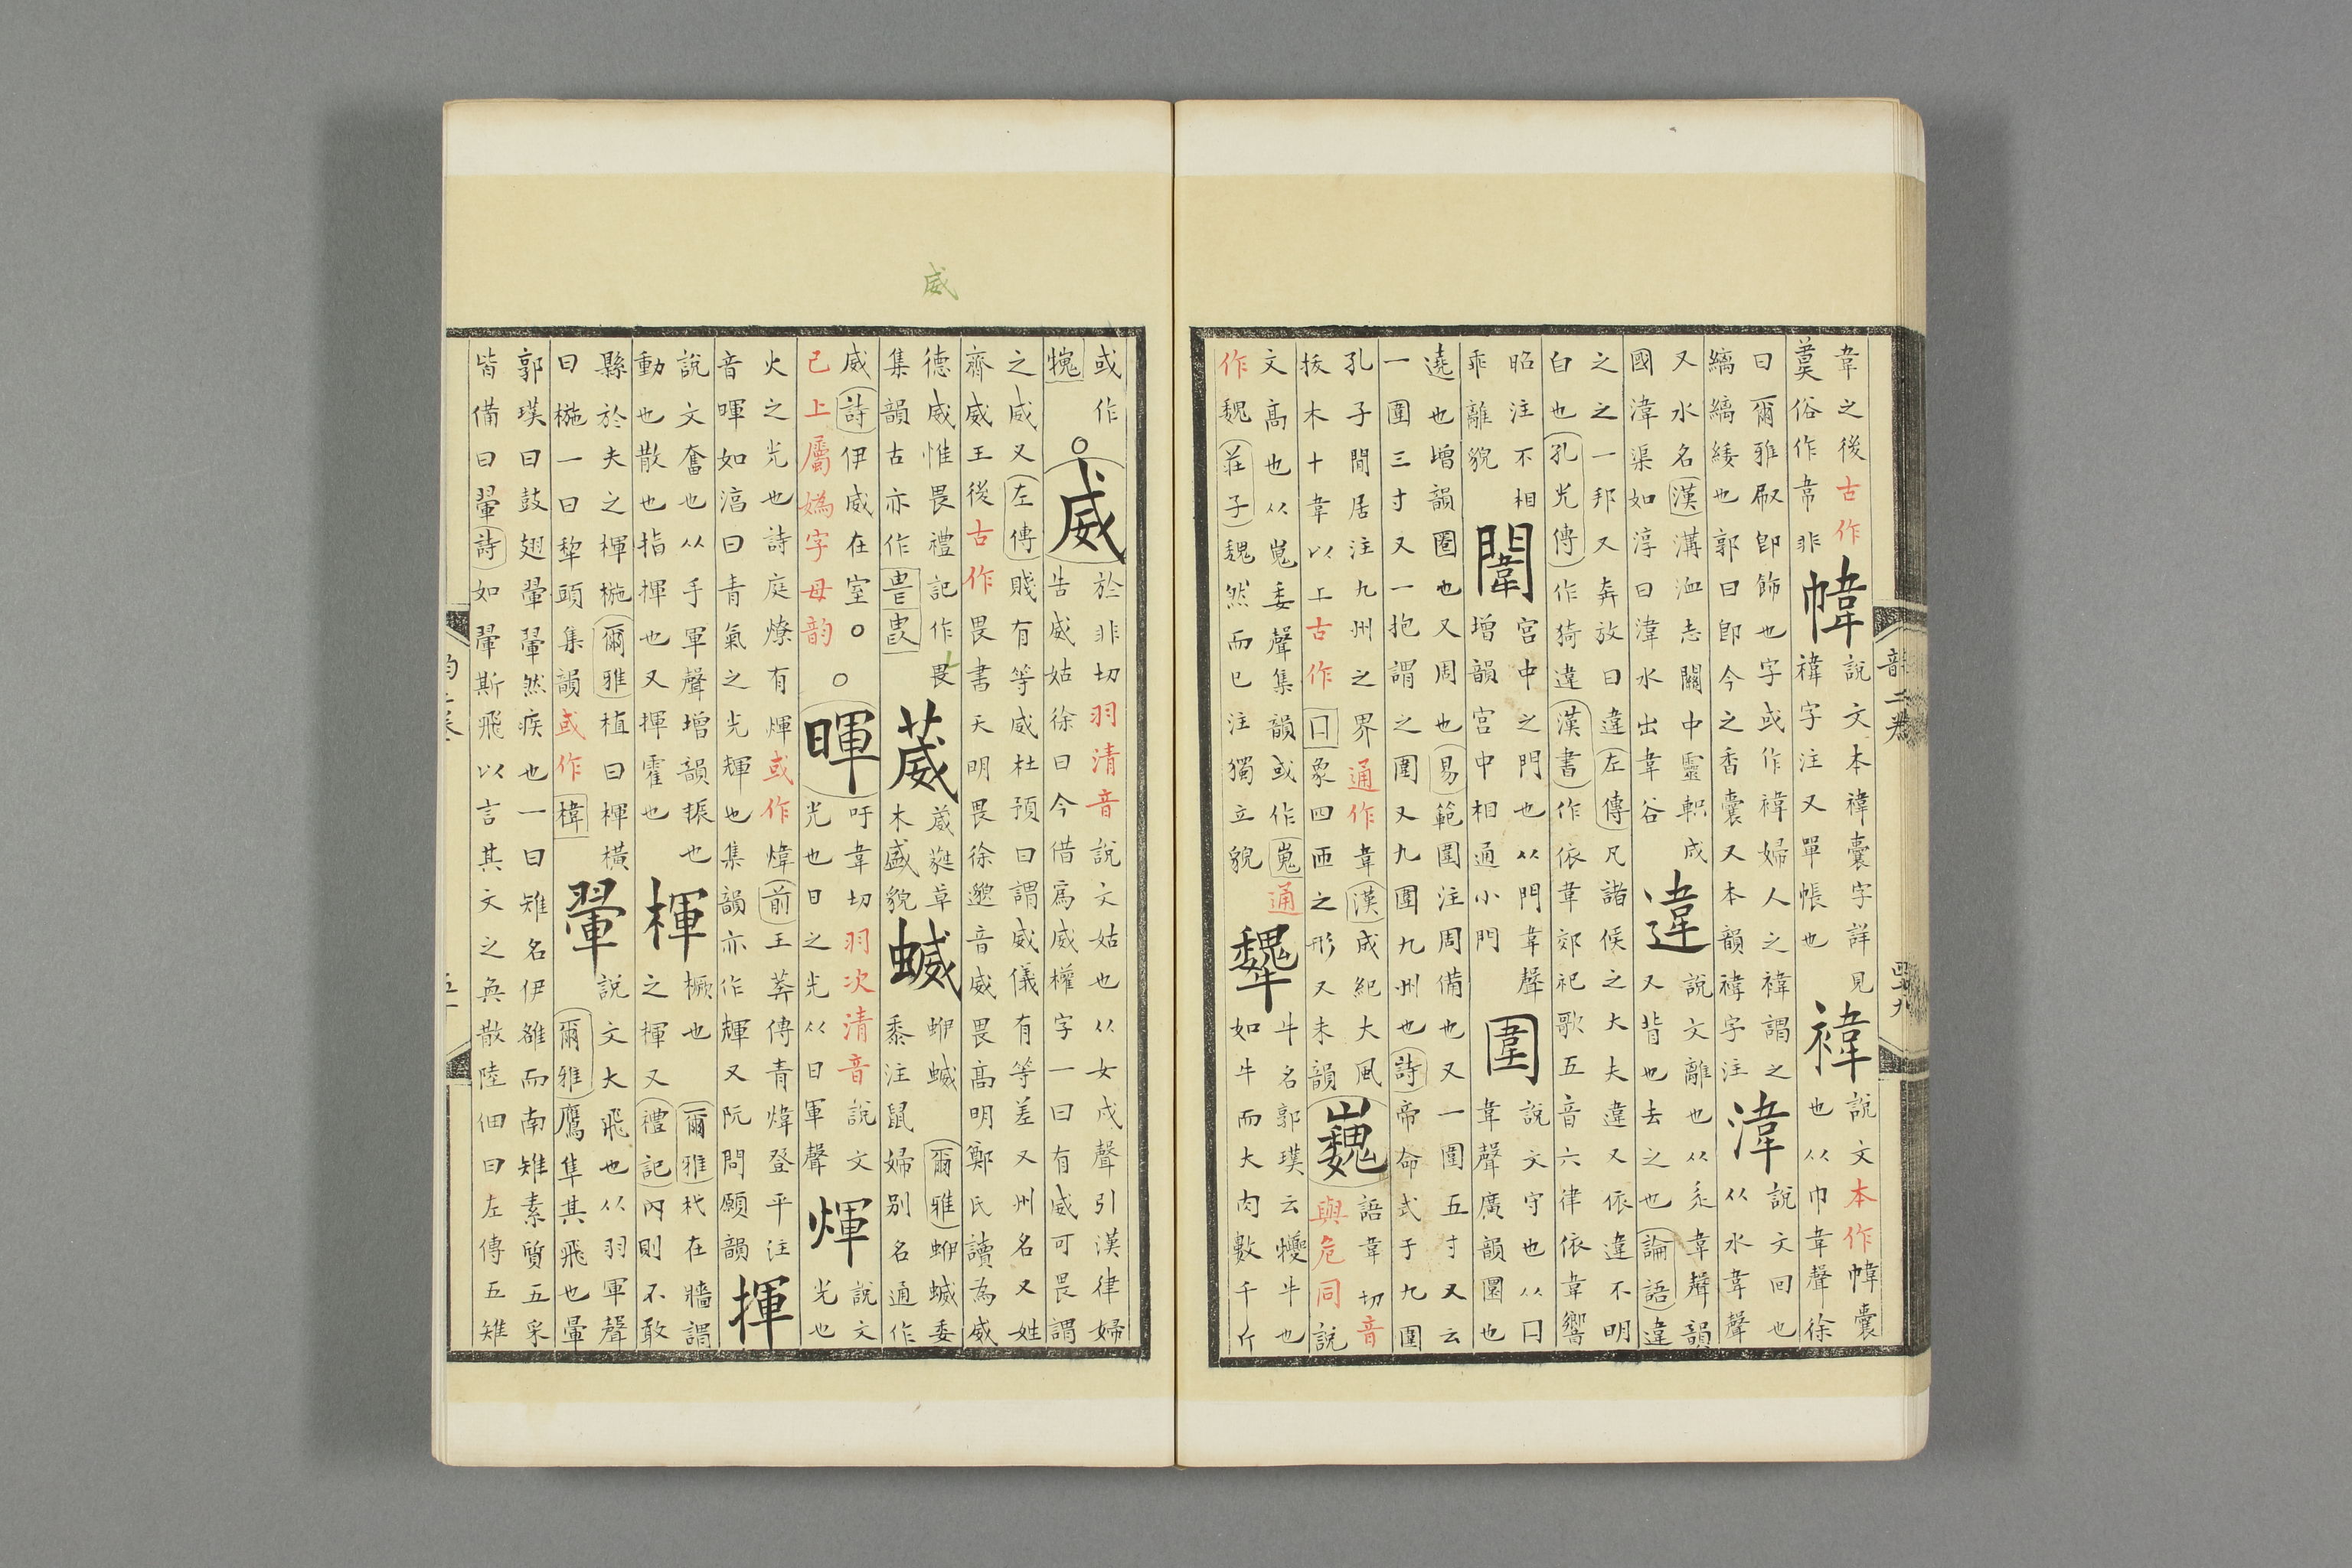 韋之後古作
俗作帬非
幃
說文本褘囊字詳見
褘字注又單帳也
褘
說文本作幃囊
也从巾韋聲徐
曰爾雅㕞即飾也字或作褘婦人之褘謂之
縭縭緌也郭曰即今之香囊又本韻褘字注
湋
說文回也
从水韋聲
又水名漢溝洫志關中靈軹成
國湋渠如淳曰湋水出韋谷
違
說文離也从辵韋聲韻
又背也去之也論語違
之之一邦又奔放曰違左傳凡諸侯之大夫違又依違不明
白也孔光傳作猗違漢書作依韋郊祀歌五音六律依韋響
昭注不相
乖離貌
闈
宮中之門也从門韋聲
增韻宮中相通小門
圍
說文守也从囗
韋聲廣韻圜也
遶也增韻圈也又周也易範圍注周備也又一圍五寸又云
一圍三寸又一抱謂之圍又九圍九州也詩帝命式于九圍
孔子閒居注九州之界通作韋漢成紀大風
拔木十韋以上古作囗象四匝之形又未韻
巍
語韋切音
與危同說
文高也从嵬委聲集韻或作嵬通
作魏莊子魏然而已注獨立貌
犩
牛名郭璞云犪牛也
如牛而大肉數千斤
韻二卷
四十九
威
或作
威
於非切羽清音說文姑也从女戌聲引漢律婦
告威姑徐曰今借爲威權字一曰有威可畏謂
之威又左傳賤有等威杜預曰謂威儀有等差又州名又姓
齊威王後古作畏書天明畏徐邈音威畏高明鄭氏讀為威
德威惟畏禮記作畏
集韻古亦作
葳
葳蕤草
木盛貌
蝛
蛜蝛爾雅蛜蝛委
黍注鼠婦別名通作
威詩伊威在室
已上屬嬀字母韵
暉
吁韋切羽次清音說文
光也日之光从日軍聲
煇
說文
光也
火之光也詩庭燎有煇或作煒前王莽傳青煒登平注
音暉如淳曰青氣之光輝也集韻亦作輝又阮問願韻
揮
說文奮也从手軍聲增韻振也
動也散也指揮也又揮霍也
楎
橛也爾雅杙在牆謂
之楎又禮記內則不敢
縣於夫之楎椸爾雅植曰楎橫
曰椸一曰犂頭集韻或作楎
翬
說文大飛也从羽軍聲
爾雅鷹隼其飛也翬
郭璞曰鼓翅翬翬然疾也一曰雉名伊雒而南雉素質五采
皆備曰翬詩如翬斯飛以言其文之奐散陸佃曰左傳五雉